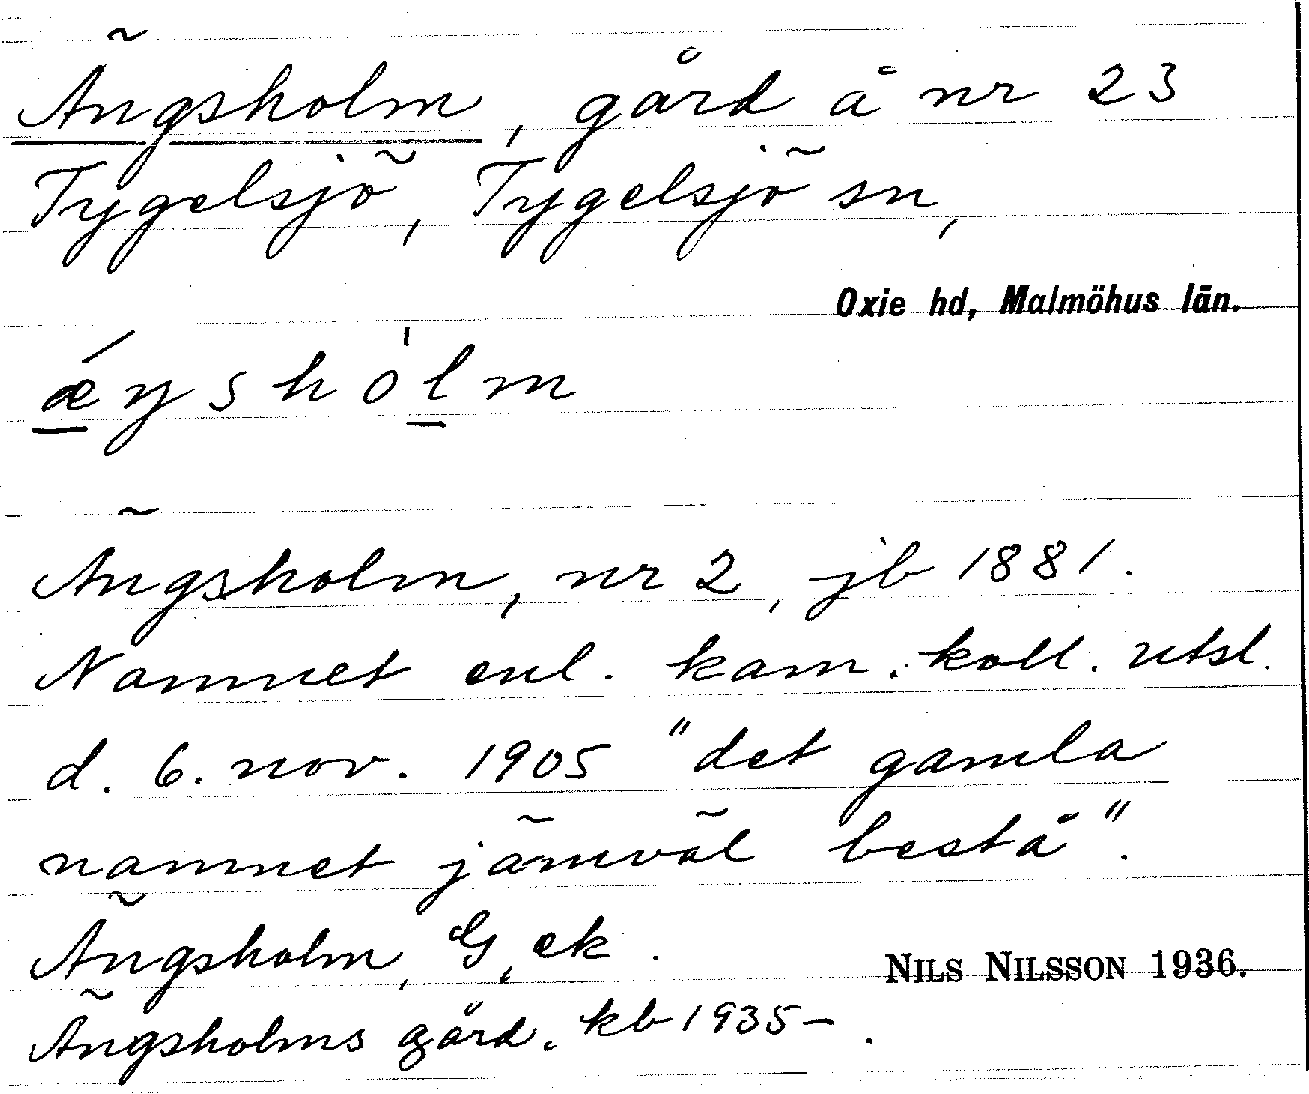 Ängsholm, gård å nr 23
Tygelsjö, Tygelsjö sn,
Oxie hd, Malmöhus län.
ǽŋshòlm
Ängsholm, nr 2, jb 1881.
Namnet enl. kam. koll. utsl.
d. 6. nov. 1905 "det gamla
namnet jämväl bestå".
Ängsholm, G, ek.
NILS NILSSON 1936.
Ängsholms gård. kb 1935–.